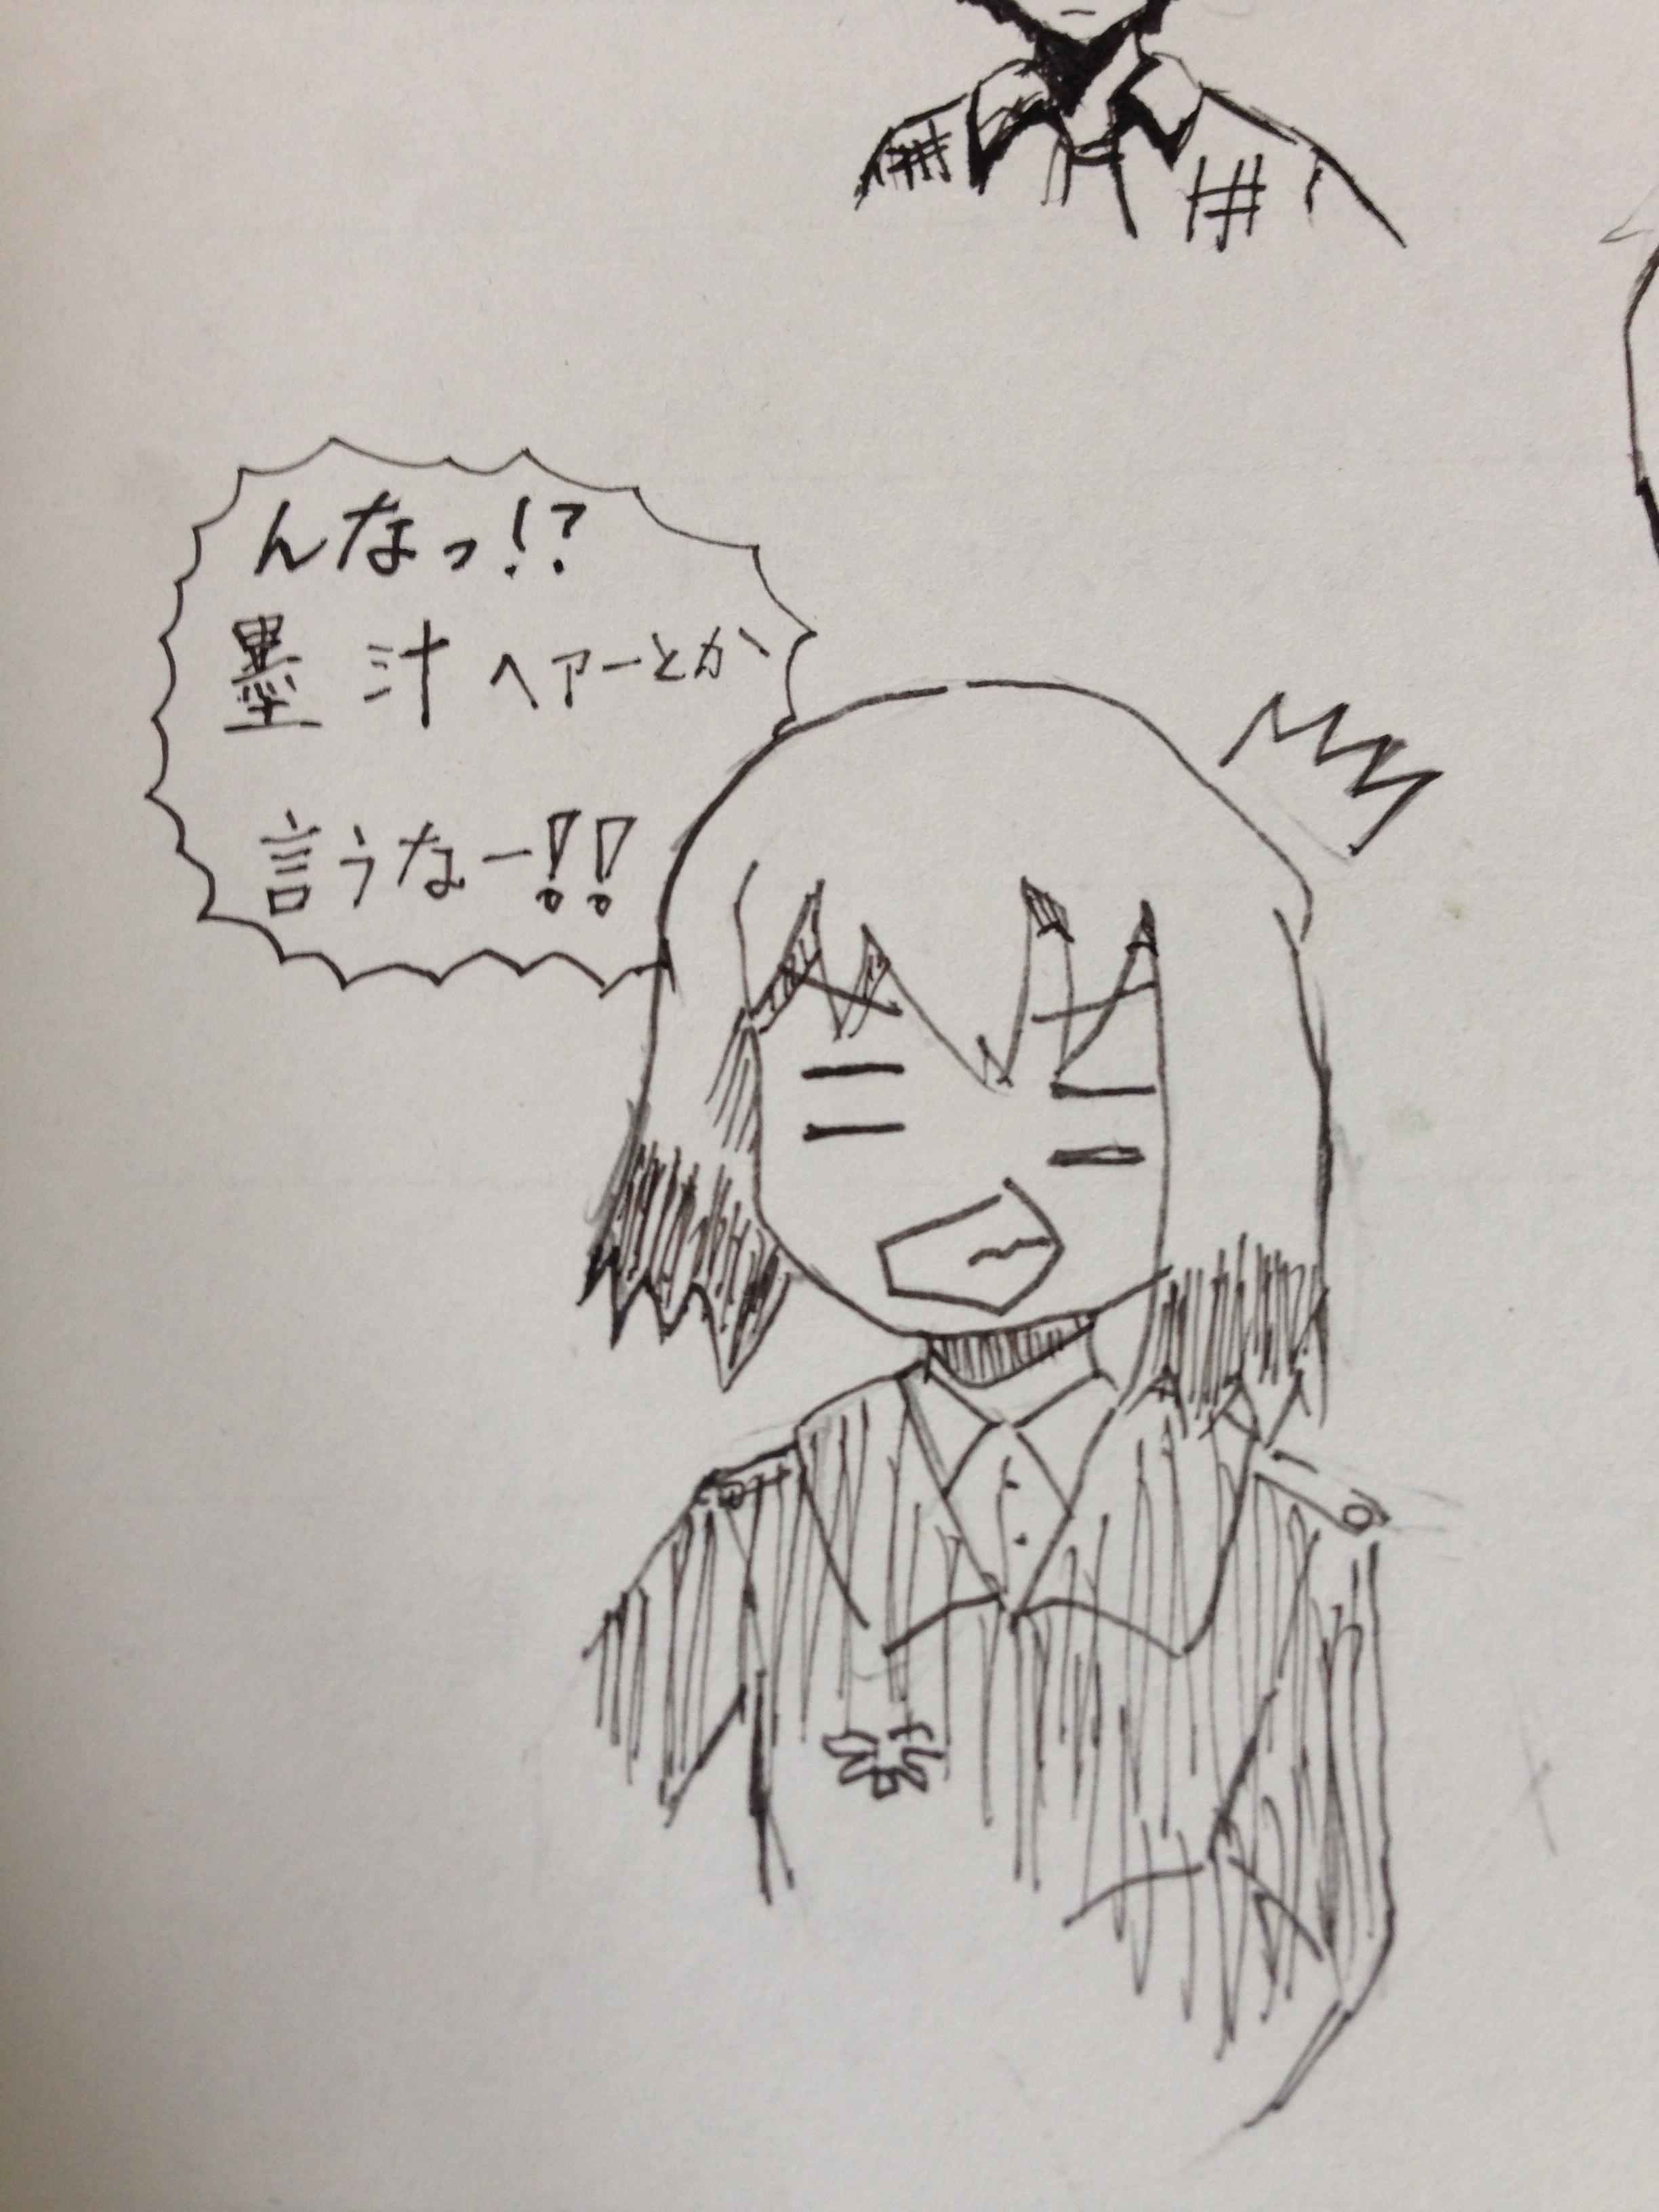 んなっ!?
墨汁ヘアーとか
言うなー!!